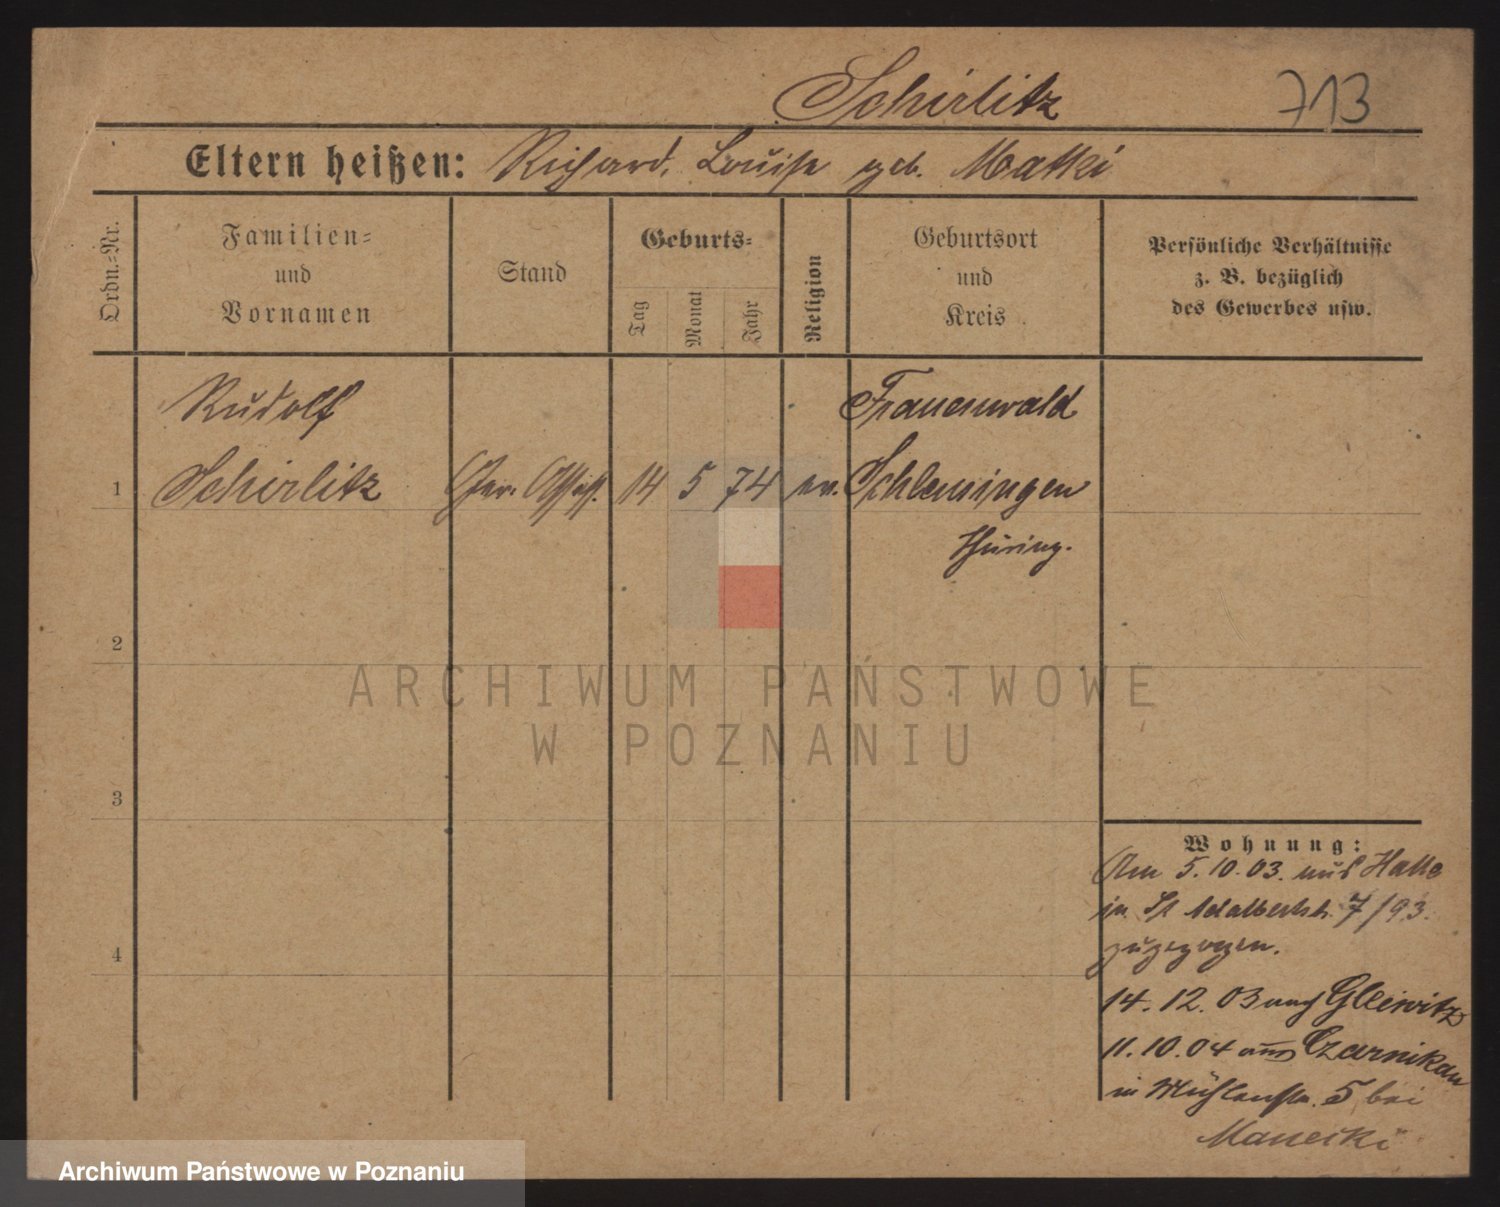 Schirlitz 713
Eltern heißen: Richard, Louise geb. Matthei
Ordn.=Nr.
Familien=
und
Vornamen
Stand
Geburts=
Tag
Monat
Jahr
Religion
Geburtsort
und
Kreis
Persönliche Verhältnisse
z. B. bezüglich
des Gewerbes usw.
Rudolf Frauenwald
1 Schirlitz Ger. Assess. 14 5 74 ev. Schleusingen
Thüring.
2
3
4
Wohnung:
Am 5.10.03. aus Halle
in St Adalbertstr. 7/93.
zugezogen.
14.12.03 nach Gleiwitz
11.10.04 aus Czarnikau
in Mühlenstr. 5 bei
Manecki
ARCHIWUM PAŃSTWOWE
W POZNANIU
Archiwum Państwowe w Poznaniu